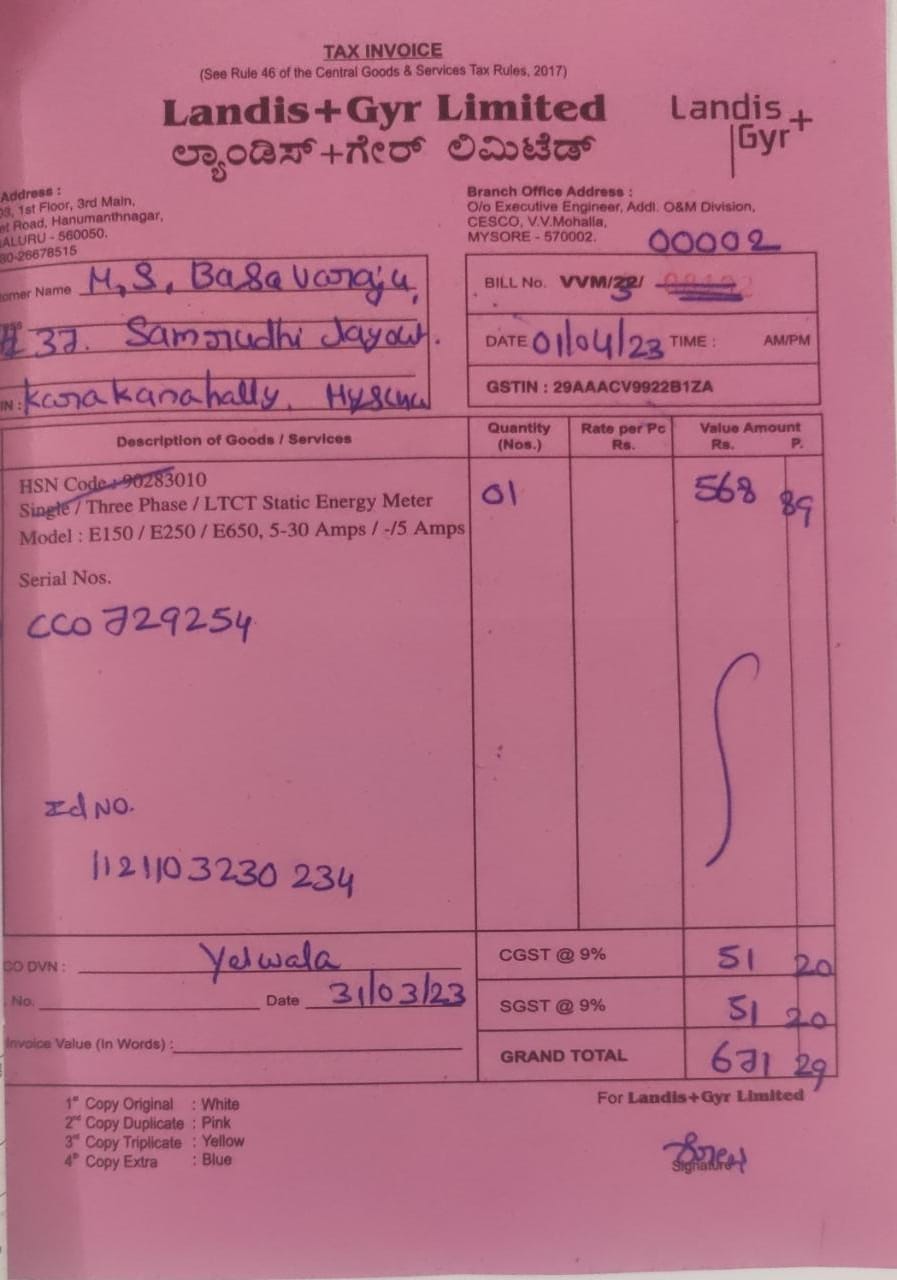 TAX INVOICE
(See Rule 46 of the Central Goods & Services Tax Rules, 2017)
Landis+Gyr Limited
ಲ್ಯಾಂಡಿಸ್+ಗೇರ್ ಲಿಮಿಟೆಡ್
Landis
Gyr+
Address :
03, 1st Floor, 3rd Main,
et Road, Hanumanthnagar,
ALURU - 560050.
80-26678515
Branch Office Address :
O/o Executive Engineer, Addl. O&M Division,
CESCO, V.V.Mohalla,
MYSORE - 570002.
00002
omer Name M.S. Basavaraju,
# 37. Samrudhi Layout.
IN : Karakanahally,
BILL No. VVM/
DATE 01/04/23 TIME : AM/PM
GSTIN : 29AAACV9922B1ZA
Description of Goods / Services Quantity (Nos.) Rate per Pc Rs. Value Amount Rs. P.
HSN Code : 90283010
Single / Three Phase / LTCT Static Energy Meter 01 568 89
Model : E150 / E250 / E650, 5-30 Amps / -/5 Amps
Serial Nos.
CCO 729254
Id NO.
1121103230 234
CO DVN : Yelwala
No. Date 31/03/23
Invoice Value (In Words) :
CGST @ 9% 51 20
SGST @ 9% 51 20
GRAND TOTAL 671 29
1st Copy Original : White
2nd Copy Duplicate : Pink
3rd Copy Triplicate : Yellow
4th Copy Extra : Blue
For Landis+Gyr Limited
Signature